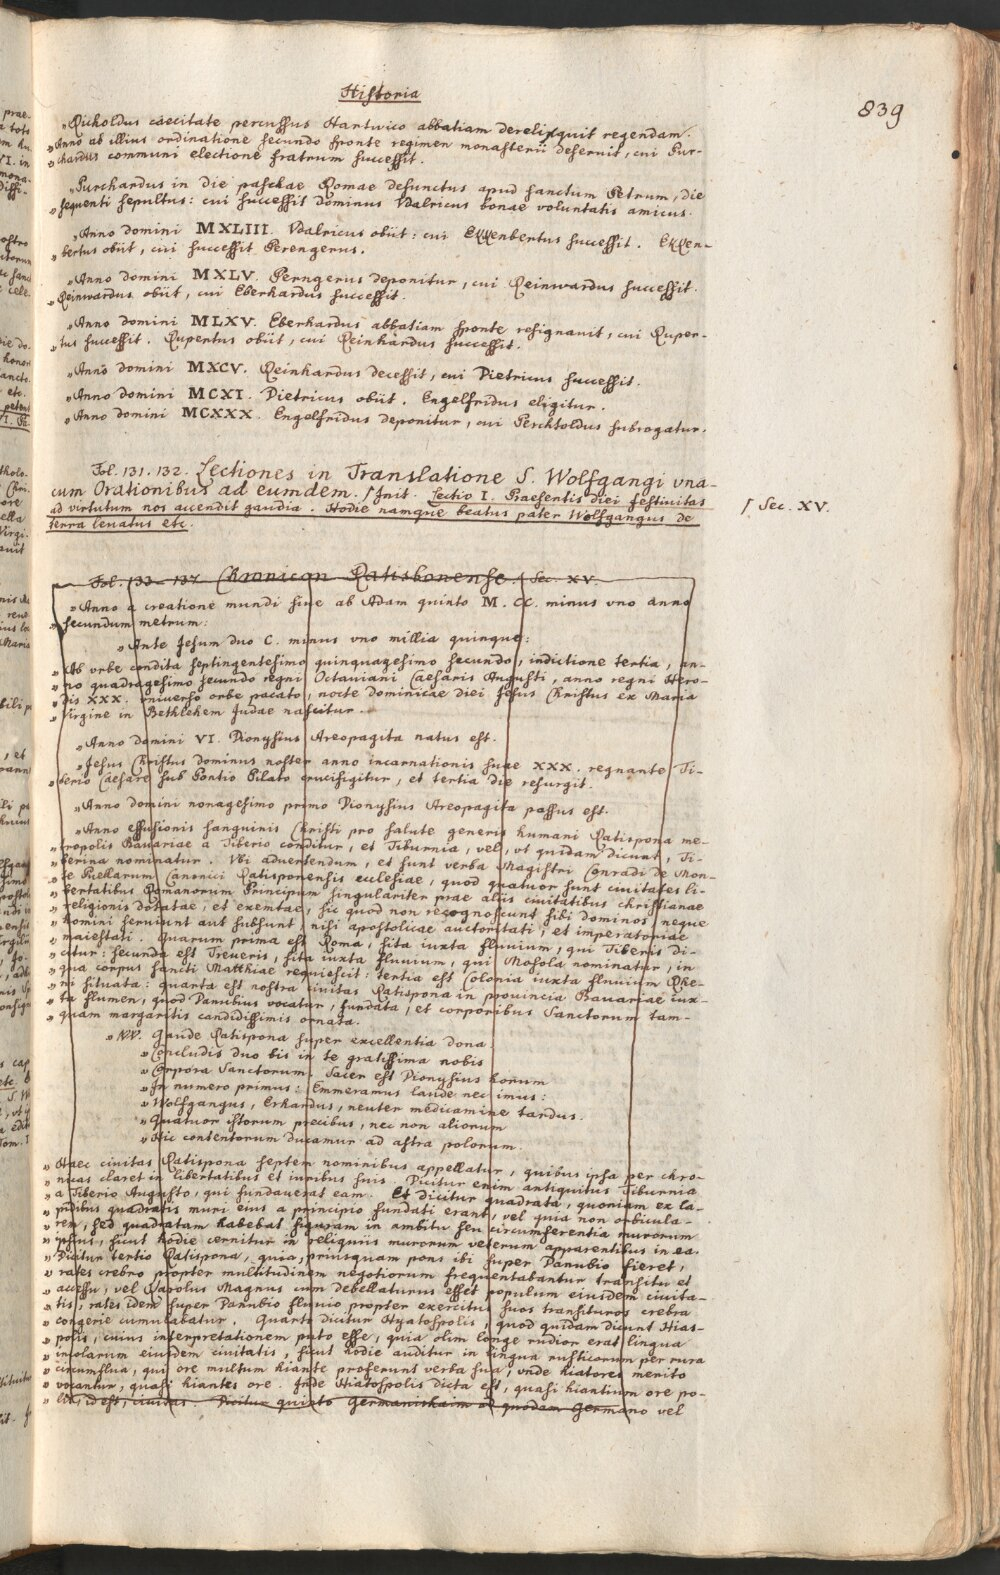 Historia
839
„Richoldus caecitate percussus Hartwico abbatiam derelinquit regendam.
„Anno ab illius ordinatione secundo sponte regimen monasterii deseruit, cui Pur-
„chardus communi electione fratrum successit.
„Purchardus in die paschae Romae defunctus apud sanctum Petrum, die
„sequenti sepultus: cui successit dominus Vdalricus bonae voluntatis amicus.
„Anno domini MXLIII. Vdalricus obiit: cui Ekkenbertus successit. Ekken-
„bertus obiit, cui successit Perengerus.
„Anno domini MXLV. Perngerus deponitur, cui Reinwardus successit.
„Reinwardus obiit, cui Eberhardus successit.
„Anno domini MLXV. Eberhardus abbatiam sponte resignauit, cui Ruper-
„tus successit. Rupertus obiit, cui Reinhardus successit.
„Anno domini MXCV. Reinhardus decessit, cui Pietricus successit.
„Anno domini MCXI. Pietricus obiit. Engelfridus eligitur.
„Anno domini MCXXX. Engelfridus deponitur, cui Perchtoldus subrogatur.
Fol. 131. 132. Lectiones in Translatione S. Wolfgangi vna-
cum Orationibus ad eumdem. / Init. Lectio I. Praesentis diei festiuitas
ad virtutum nos accendit gaudia. Hodie namque beatus pater Wolfgangus de
terra leuatus etc.
/ Sec. XV.
Fol. 133–137 Chronicon Ratisbonense. / Sec. XV.
„Anno a creatione mundi siue ab Adam quinto M. CC. minus vno anno
„secundum metrum:
„Ante Jesum duo C. minus vno millia quinque:
„Ab vrbe condita septingentesimo quinquagesimo secundo, indictione tertia, an-
„no quadragesimo secundo regni Octauiani Caesaris Augusti, anno regni Hero-
„dis XXX. vniuerso orbe pacato, nocte dominicae diei Jesus Christus ex Maria
„Virgine in Bethlehem Judae nascitur.
„Anno domini VI. Dionysius Areopagita natus est.
„Jesus Christus dominus noster anno incarnationis suae XXX. regnante Ti-
„berio Caesare sub Pontio Pilato crucifigitur, et tertia die resurgit.
„Anno domini nonagesimo primo Dionysius Areopagita passus est.
„Anno effusionis sanguinis Christi pro salute generis humani Ratispona me-
„tropolis Bauariae a Tiberio conditur, et Tiburnia, vel, vt quidam dicunt, Ti-
„berina nominatur. Vbi aduertendum, et sunt verba Magistri Conradi de Mon-
„te Puellarum Canonici Ratisponensis ecclesiae, quod quatuor sunt ciuitates li-
„bertatibus Romanorum Principum singulariter prae aliis ciuitatibus christianae
„religionis dotatae, et exemtae, sic quod non recognoscunt sibi dominos, neque
„homini seruiunt aut subsunt, nisi apostolicae auctoritati, et imperatoriae
„maiestati. Quarum prima est Roma, sita iuxta fluuium, qui Tiberis di-
„citur: secunda est Treueris, sita iuxta fluuium, qui Mosola nominatur, in
„qua corpus sancti Matthiae requiescit: tertia est Colonia iuxta fluuium Rhe-
„ni situata: quarta est nostra ciuitas Ratispona in prouincia Bauariae iux-
„ta flumen, quod Danubius vocatur, fundata, et corporibus Sanctorum tam-
„quam margaritis candidissimis ornata.
„VV. Gaude Ratispona super excellentia dona.
„Concludis duo bis in te gratissima nobis
„Corpora Sanctorum. Sacer est Dionysius horum
„In numero primus: Emmeramus laude nec imus:
„Wolfgangus, Erhardus, neuter medicamine tardus.
„Quatuor istorum precibus, nec non aliorum
„Hic contentorum Ducamur ad astra polorum.
„Haec ciuitas Ratispona septem nominibus appellatur, quibus ipsa per chro-
„nicas claret in libertatibus et iuribus suis. Dicitur enim antiquitus Tiburnia
„a Tiberio Augusto, qui fundauerat eam. Et dicitur quadrata, quoniam ex la-
„pidibus quadratis muri eius a principio fundati erant, vel quia non orbicula-
„rem, sed quadratam habebat figuram in ambitu seu circumferentia murorum
„ipsius, sicut hodie cernitur in reliquiis murorum veterum apparentibus in ea.
„Dicitur tertio Ratispona, quia, priusquam pons ibi super Danubio fieret,
„rates crebro propter multitudinem negotiorum frequentabantur transitu et
„accessu, vel Carolus Magnus cum debellaturus esset populum eiusdem ciuita-
„tis, rates idem super Danubio fluuio propter exercitus suos transituros crebra
„congerie cumulabatur. Quarto dicitur Hyatospolis, quod quidam dicunt Hias-
„polis, cuius interpretationem puto esse, quia olim longe rudior erat lingua
„incolarum eiusdem ciuitatis, sicut hodie auditur in lingua rusticorum per rura
„circumflua, qui ore multum hiante proferunt verba sua, vnde hiatores merito
„vocantur, quasi hiantes ore. Inde Hiatospolis dicta est, quasi hiantium ore po-
„lis, id est, ciuitas. Dicitur quinto Germanishaim a quodam Germano vel